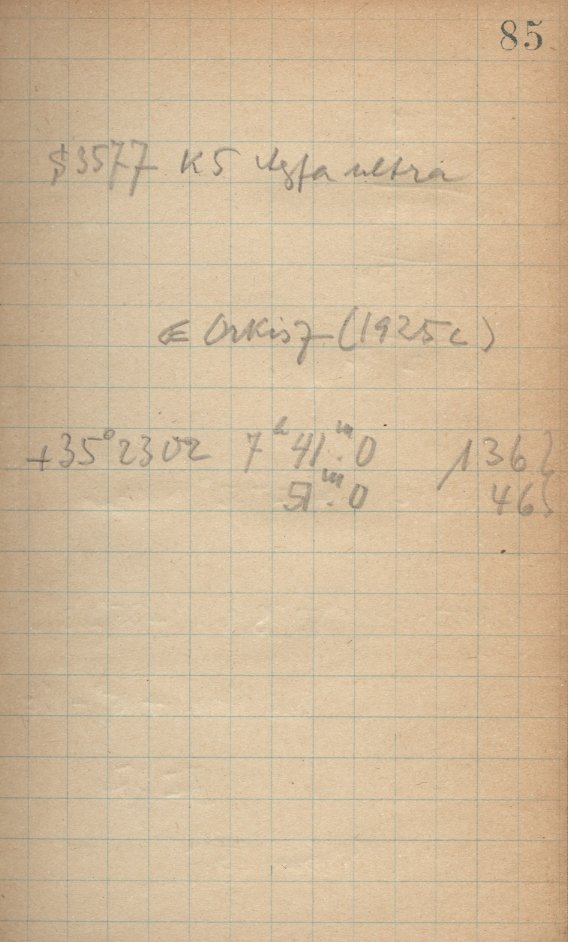 85
S3577 K5 Agfa ultra
Orkisz (1925c)
+35°2302 7ʰ41ᵐ.0 136
51ᵐ.0 46